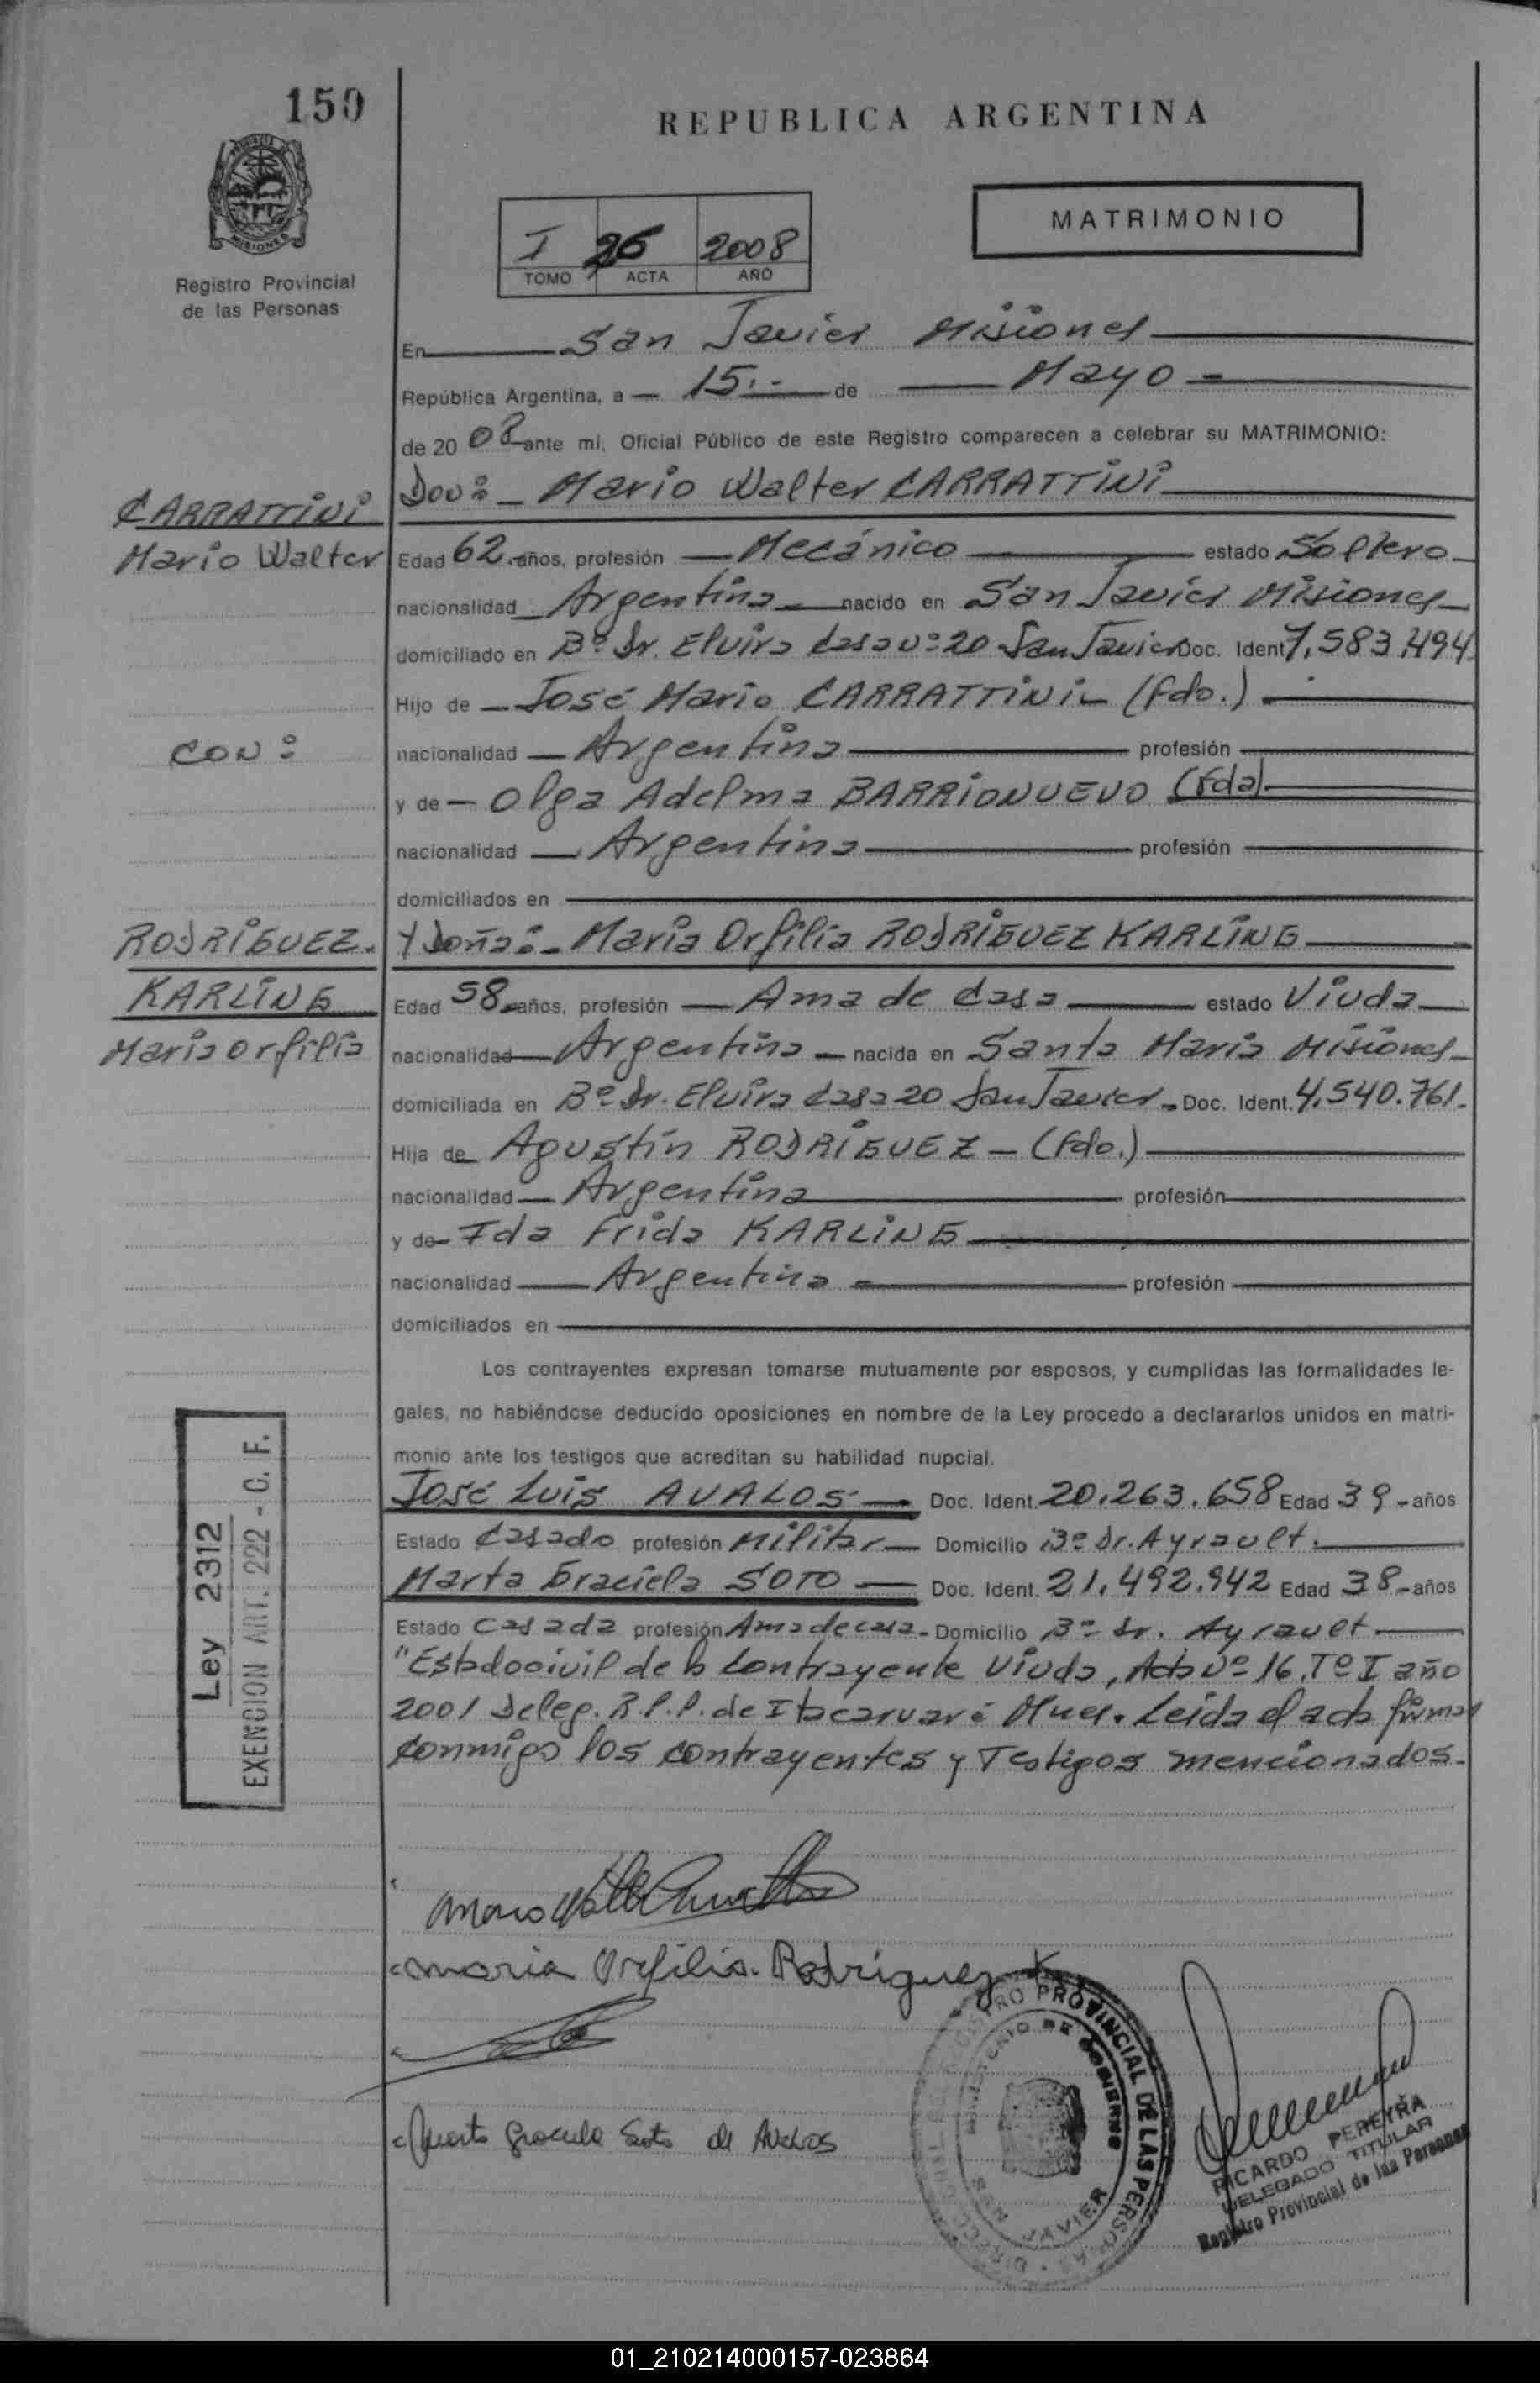 150
REPUBLICA ARGENTINA
MISIONES
Registro Provincial
de las Personas
I 26 2008
TOMO ACTA AÑO
MATRIMONIO
En San Javier Misiones
República Argentina, a 15.- de Mayo
de 20 08 ante mi, Oficial Público de este Registro comparecen a celebrar su MATRIMONIO:
CARRATTINI
Mario Walter
Don: Mario Walter CARRATTINI
Edad 62 años, profesión Mecánico estado Soltero
nacionalidad Argentina nacido en San Javier Misiones
domiciliado en Bº Sr. Elvira Casa Nº 20 San Javier Doc. Ident 7.583.494
Hijo de José Mario CARRATTINI (fdo.)
con:
nacionalidad Argentina profesión
y de Olga Adelma BARRIONUEVO (fda)
nacionalidad Argentina profesión
domiciliados en
RODRIGUEZ
KARLING
Maria Orfilia
Y Doña: Maria Orfilia RODRIGUEZ KARLING
Edad 58 años, profesión Ama de Casa estado Viuda
nacionalidad Argentina nacida en Santa Maria Misiones
domiciliada en Bº Sr. Elvira Casa 20 San Javier Doc. Ident. 4.540.761.
Hija de Agustín RODRIGUEZ (fdo.)
nacionalidad Argentina profesión
y de Ida Frida KARLING
nacionalidad Argentina profesión
domiciliados en
Los contrayentes expresan tomarse mutuamente por esposos, y cumplidas las formalidades le-
gales, no habiéndose deducido oposiciones en nombre de la Ley procedo a declararlos unidos en matri-
monio ante los testigos que acreditan su habilidad nupcial.
José Luis AVALOS Doc. Ident. 20.263.658 Edad 39 años
Estado Casado profesión Militar Domicilio Bº Dr. Ayrault.
Marta Graciela SOTO Doc. Ident. 21.492.942 Edad 38 años
Estado Casada profesión Ama de casa Domicilio Bº Dr. Ayrault
"Estado civil de la Contrayente Viuda, Acta Nº 16, Tº I año
2001 Deleg. R.P.P. de Itacaruaré Mnes. Leída el acta firman
conmigo los contrayentes y Testigos mencionados.
Ley 2312
EXENCION ART. 222 - C. F.
Maria Orfilia Rodriguez K
Marta Graciela Soto de Avalos
REGISTRO PROVINCIAL DE LAS PERSONAS
MINISTERIO DE GOBIERNO
SAN JAVIER
RICARDO PEREYRA
DELEGADO TITULAR
Registro Provincial de las Personas
01_210214000157-023864